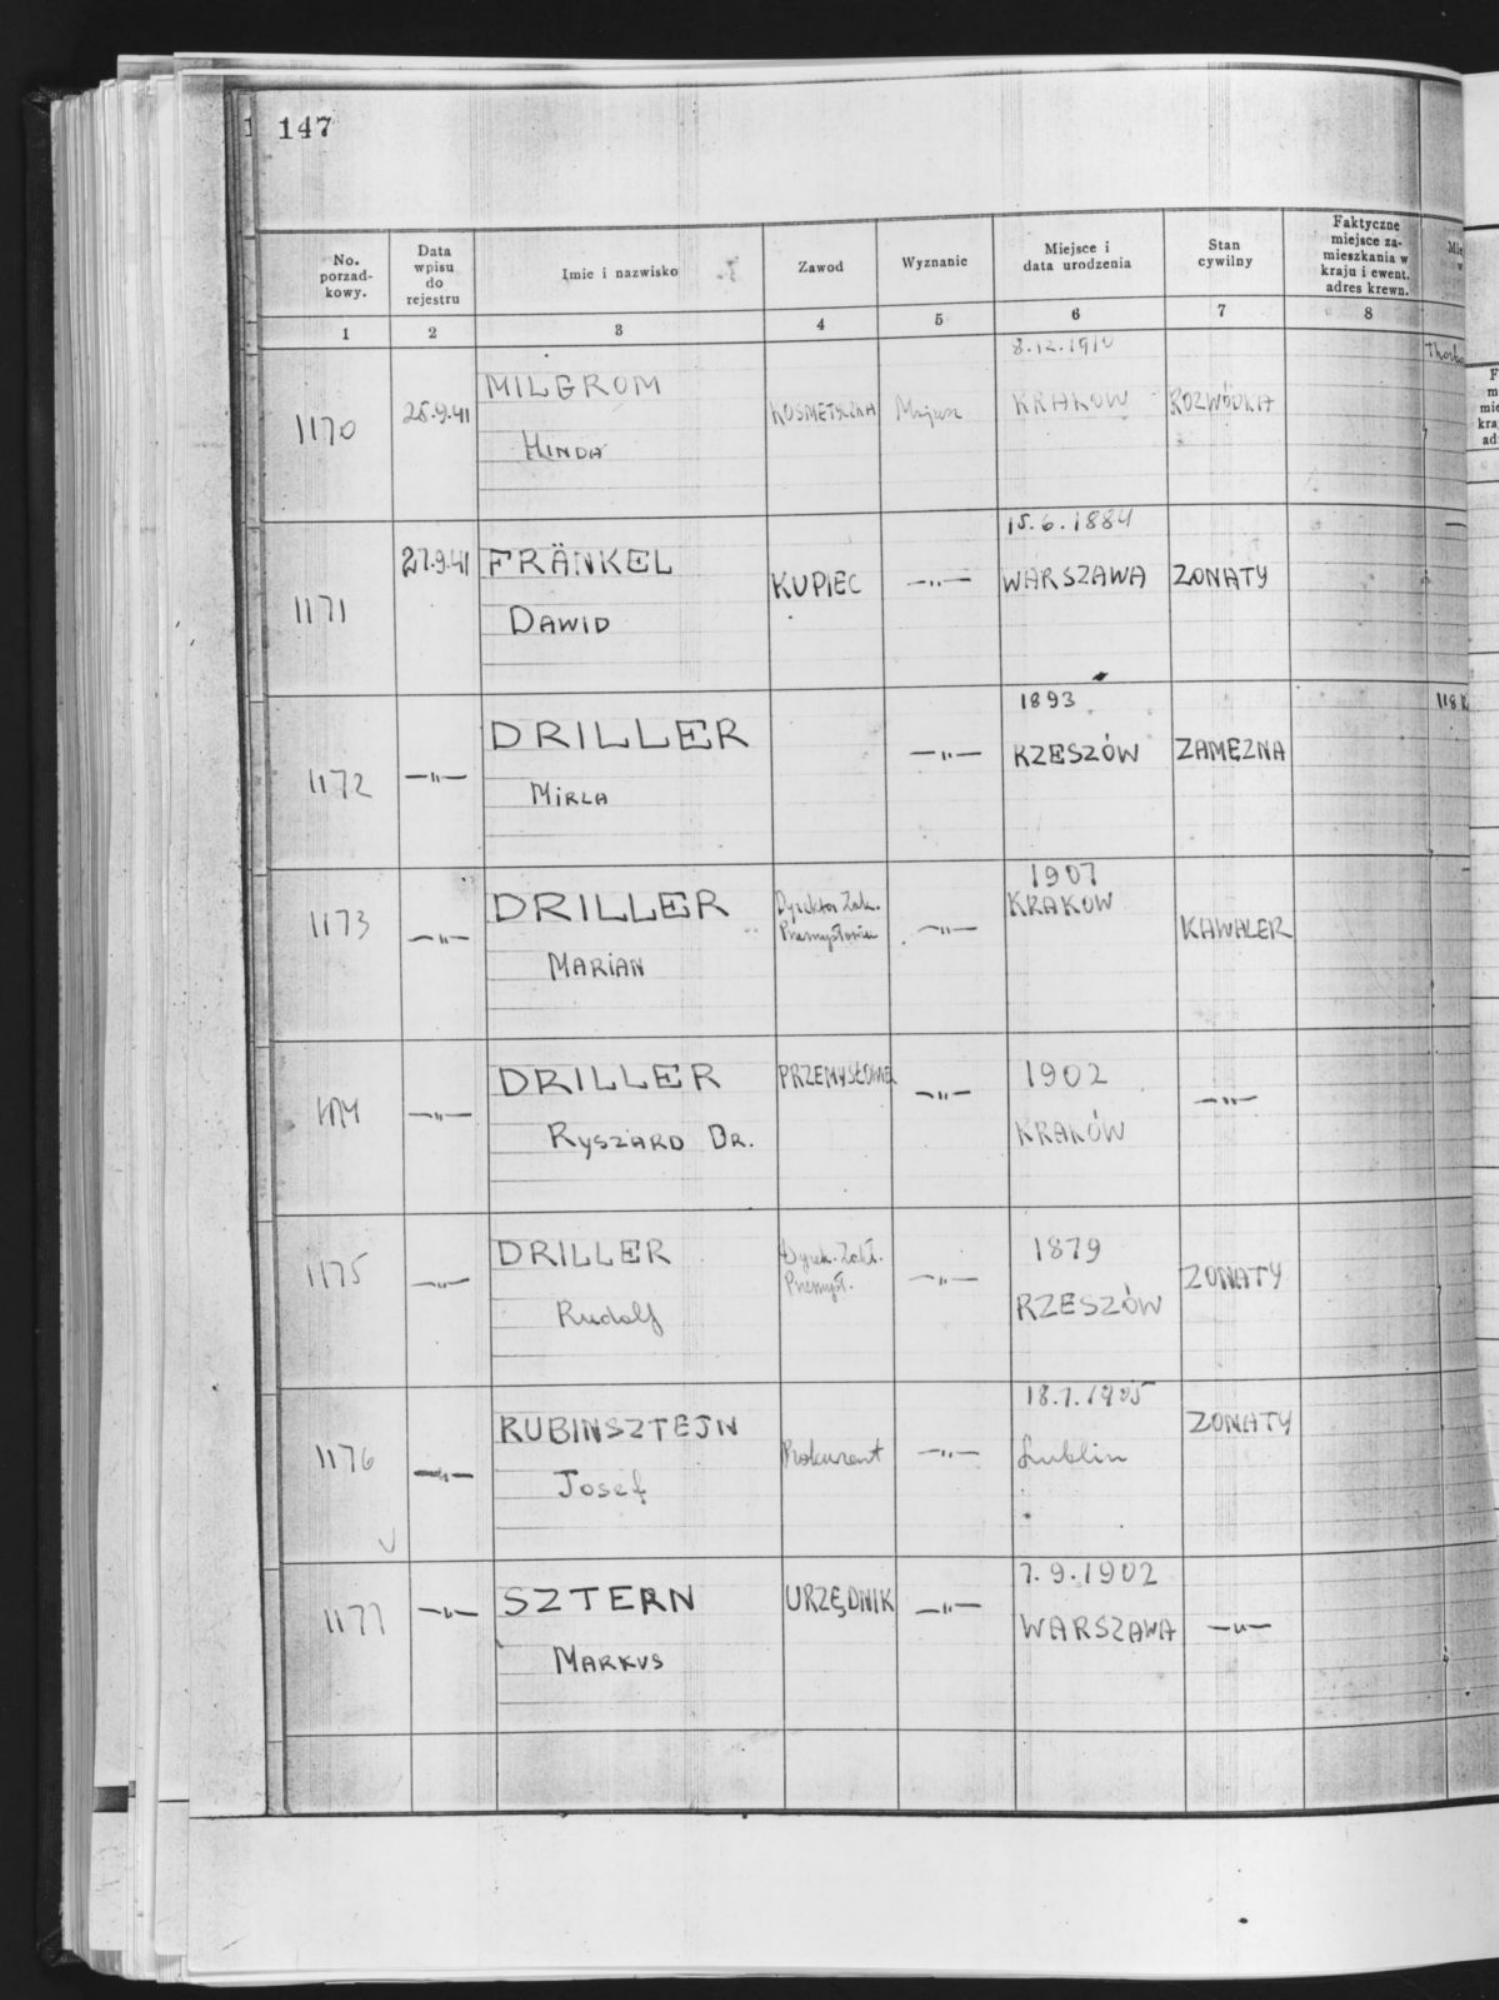 147
No. porzad- kowy.
Data wpisu do rejestru
Imie i nazwisko
Zawod
Wyznanie
Miejsce i data urodzenia
Stan cywilny
Faktyczne miejsce za- mieszkania w kraju i ewent. adres krewn.
1 2 3 4 5 6 7 8
8.12.1910
MILGROM
1170 25.9.41 KOSMETYCZKA KRAKOW ROZWÓDKA
HINDA
15.6.1884
27.9.41 FRÄNKEL
1171 KUPIEC —"— WARSZAWA ZONATY
DAWID
1893
DRILLER
1172 —"— —"— RZESZÓW ZAMĘZNA
MIRLA
1907
1173 DRILLER Dyrektor Zak. KRAKOW
—"— Przemysłowiec —"— KAWALER
MARIAN
DRILLER PRZEMYSŁOWIEC 1902
1174 —"— —"— —"—
RYSZARD DR. KRAKÓW
DRILLER Dyrek. Zakł. 1879
1175 —"— Przemysł. —"— ZONATY
Rudolf RZESZÓW
18.7.1905
RUBINSZTEJN ZONATY
1176 —"— Prokurent —"— Lublin
Josef
7.9.1902
SZTERN URZĘDNIK
1177 —"— —"— WARSZAWA —"—
MARKUS